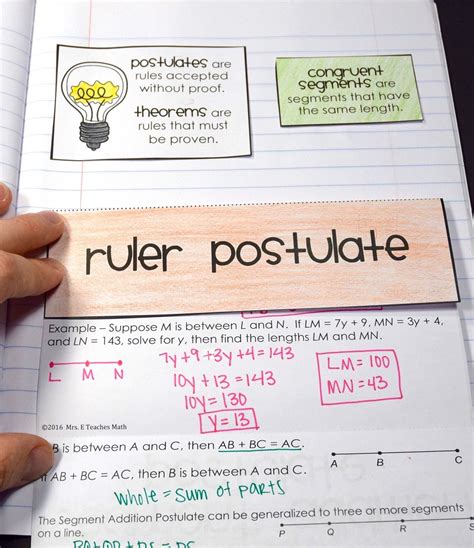 postulates are
rules accepted
without proof.
theorems are
rules that must
be proven.
congruent
segments are
segments that have
the same length.
ruler postulate
Example – Suppose M is between L and N. If LM = 7y + 9, MN = 3y + 4,
and LN = 143, solve for y, then find the lengths LM and MN.
7y+9+3y+4=143
10y+13=143
10y=130
y=13
LM=100
MN=43
L M N
©2016 Mrs. E Teaches Math
B is between A and C, then AB + BC = AC.
AB + BC = AC, then B is between A and C.
A B C
whole = sum of parts
The Segment Addition Postulate can be generalized to three or more segments
on a line.
P Q R S